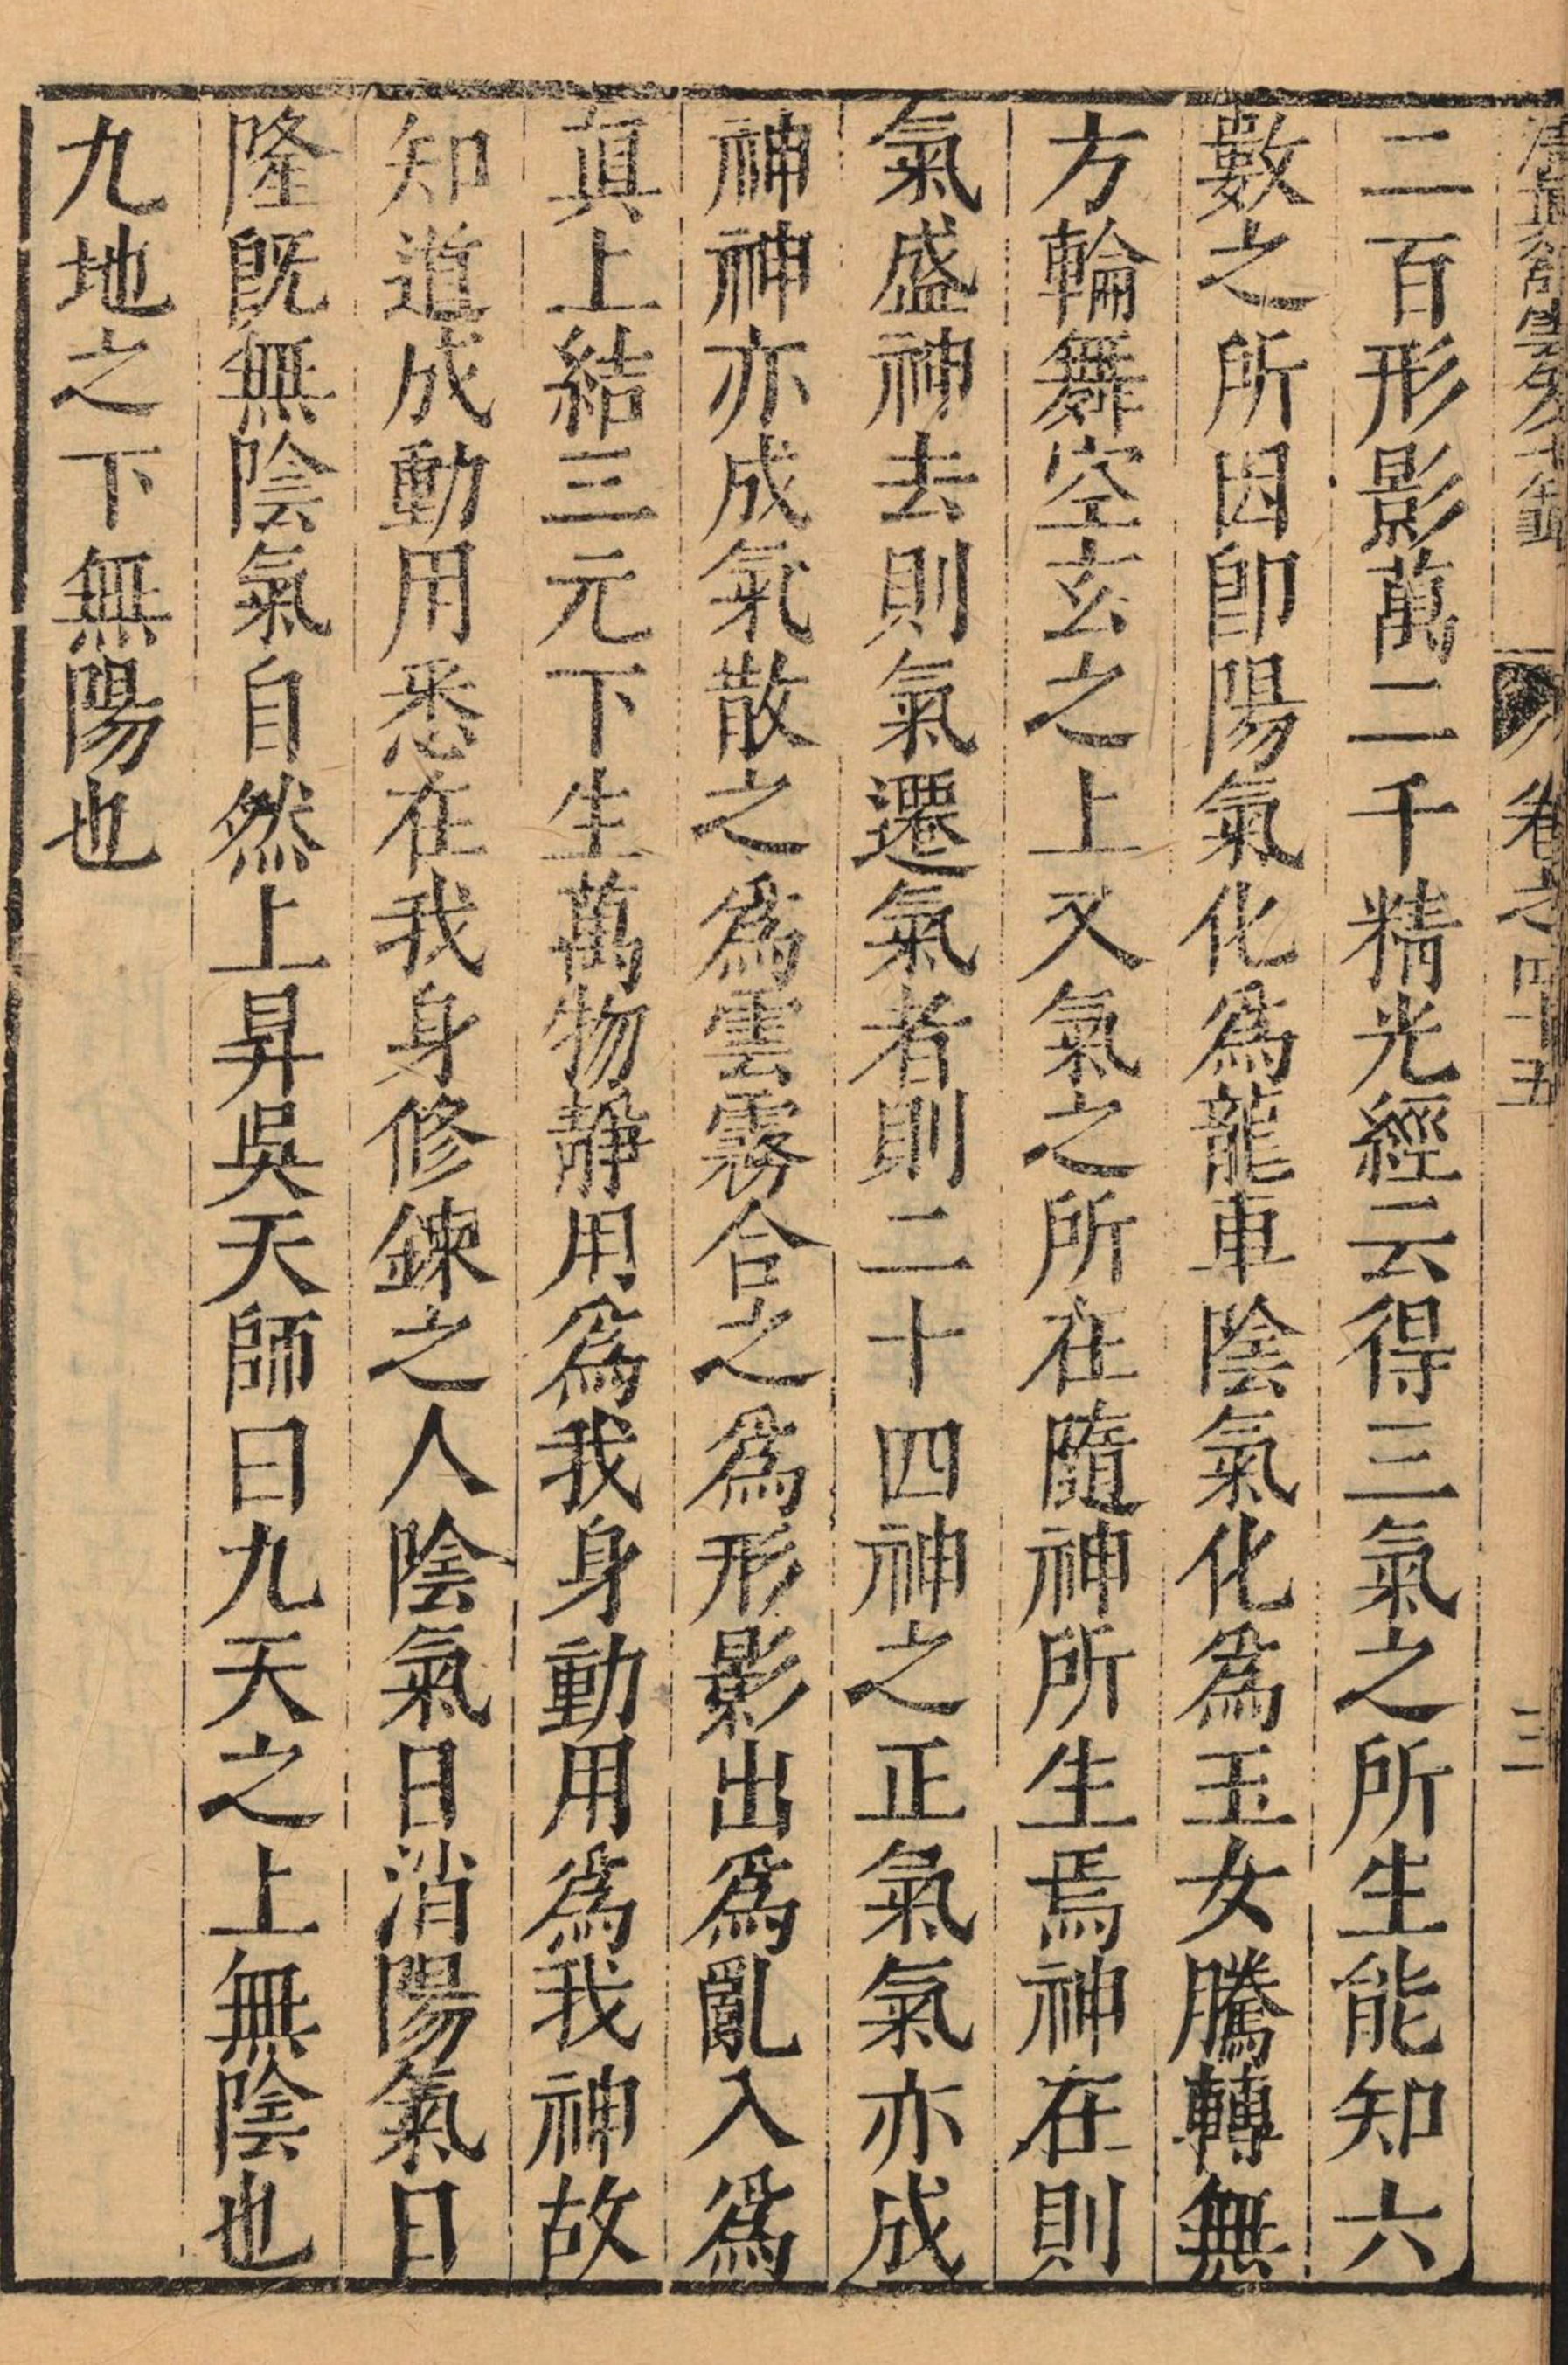 卷之四十五
三
二百形影萬二千精光經云得三氣之所生能知六
數之所因卽陽氣化爲龍車陰氣化爲玉女騰轉無
方輪舞空玄之上又氣之所在隨神所生焉神在則
氣盛神去則氣遷氣者則二十四神之正氣氣亦成
神神亦成氣散之爲雲霧合之爲形影出爲亂入爲
真上結三元下生萬物靜用爲我身動用爲我神故
知道成動用悉在我身修鍊之人陰氣日消陽氣日
隆旣無陰氣自然上昇吳天師曰九天之上無陰也
九地之下無陽也